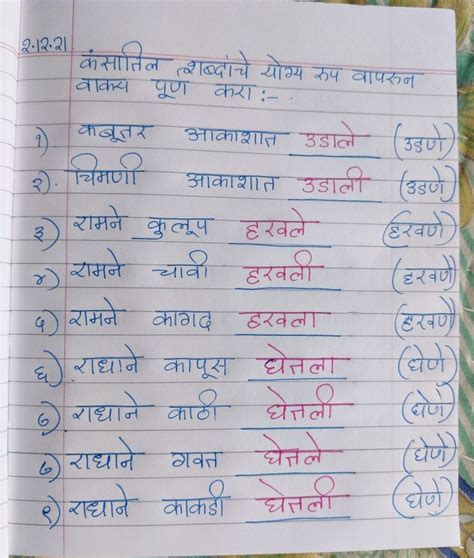 २.१२.२१
कंसातिल शब्दांचे योग्य रुप वापरुन
वाक्य पूण करा :-
१) कबूतर आकाशात उडाले (उडणे)
२). चिमणी आकाशात उडाली (उडणे)
३) रामने कुलूप हरवले (हरवणे)
४) रामने चावी हरवली (हरवणे)
५) रामने कागद हरवला (हरवणे)
६). राधाने कापूस घेतला (घेणे)
७) राधाने काठी घेतली (घेणे)
७) राधाने गवत घेतले (घेणे)
९) राधाने काकडी घेतली (घेणे)